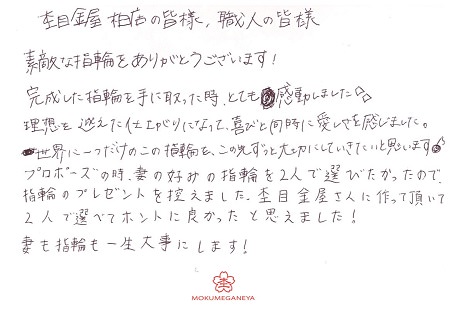 杢目金屋 柏店の皆様、職人の皆様
素敵な指輪をありがとうございます!
完成した指輪を手に取った時、とても感動しました
理想を越えた仕上がりになって、喜びと同時に愛しさを感じました。
世界に一つだけのこの指輪を、この先ずっと大切にしていきたいと思います
プロポーズの時、妻の好みの指輪を2人で選びたかったので、
指輪のプレゼントを控えました。杢目金屋さんに作って頂いて
2人で選べてホントに良かったと思えました!
妻も指輪も一生大事にします!
MOKUMEGANEYA